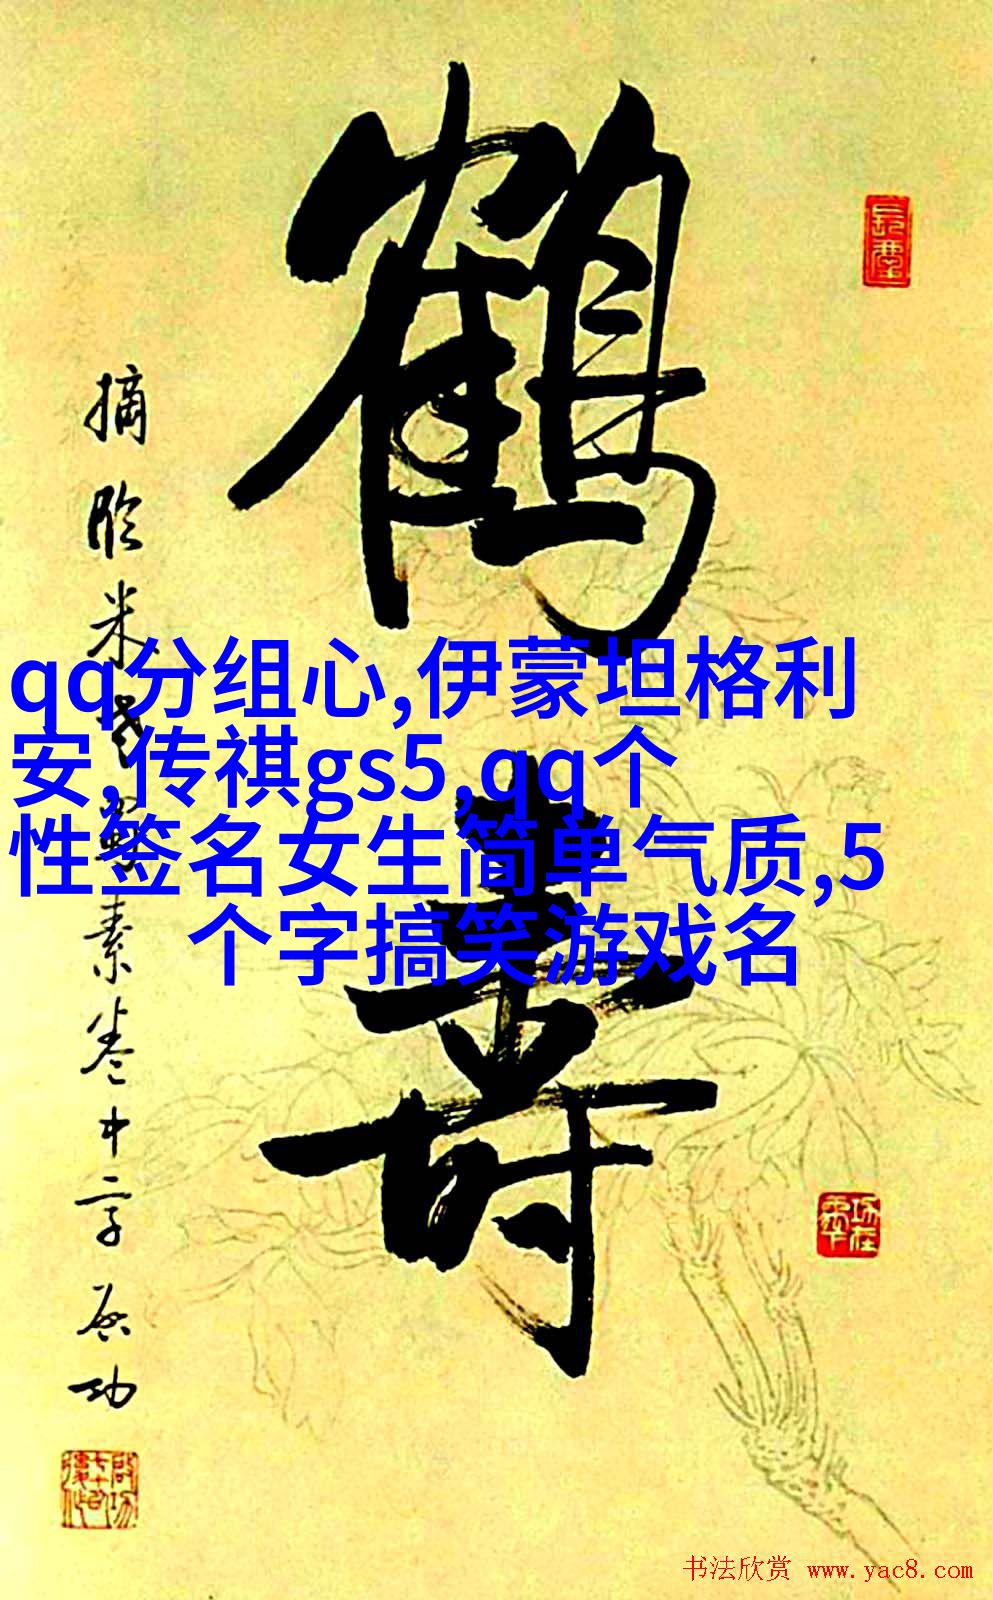 鹤寿
摘临米老蜀素卷中字 启功
qq分组心,伊蒙坦格利
安,传祺gs5,qq个
性签名女生简单气质,5
个字搞笑游戏名
书法欣赏 www.yac8.com